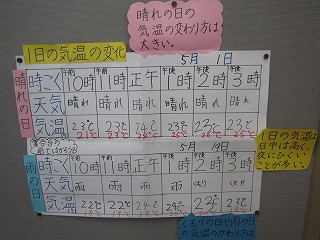 晴れの日の
気温の変わり方は
大きい。
1日の気温の変化
5月 1日
晴れの日
時こく 午前10時 午前11時 正午 午後1時 午後2時 午後3時
天気 晴れ 晴れ 晴れ 晴れ 晴れ 晴れ
気温
5月 19日
雨の日
時こく 10時 11時 正午 1時 2時 3時
天気 雨 雨 雨 雨 くもり くもり
気温 22℃ 22℃ 24℃ 24℃ 23℃
1日の気温は
日中は高く、
夜にひくい
ことが多い。
くもりの日や雨の日
の気温のかわり方は